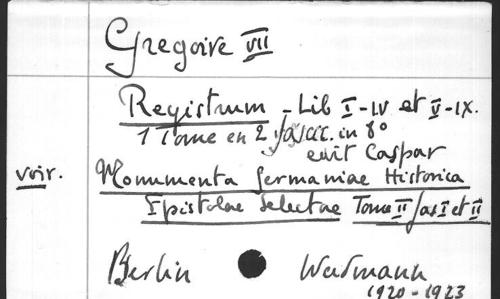 Gregoire VII
Registrum - Lib I-IV et V-IX.
1 Tome en 2 fasc. in 8°
edit Caspar
voir. Monumenta Germaniae Historica
Epistolae Selectae Tome II fas I et II
Berlin Weidmann
1920-1923